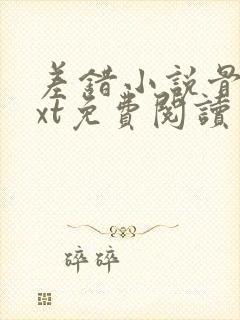 差錯小説最
xt免費閱讀
碎碎